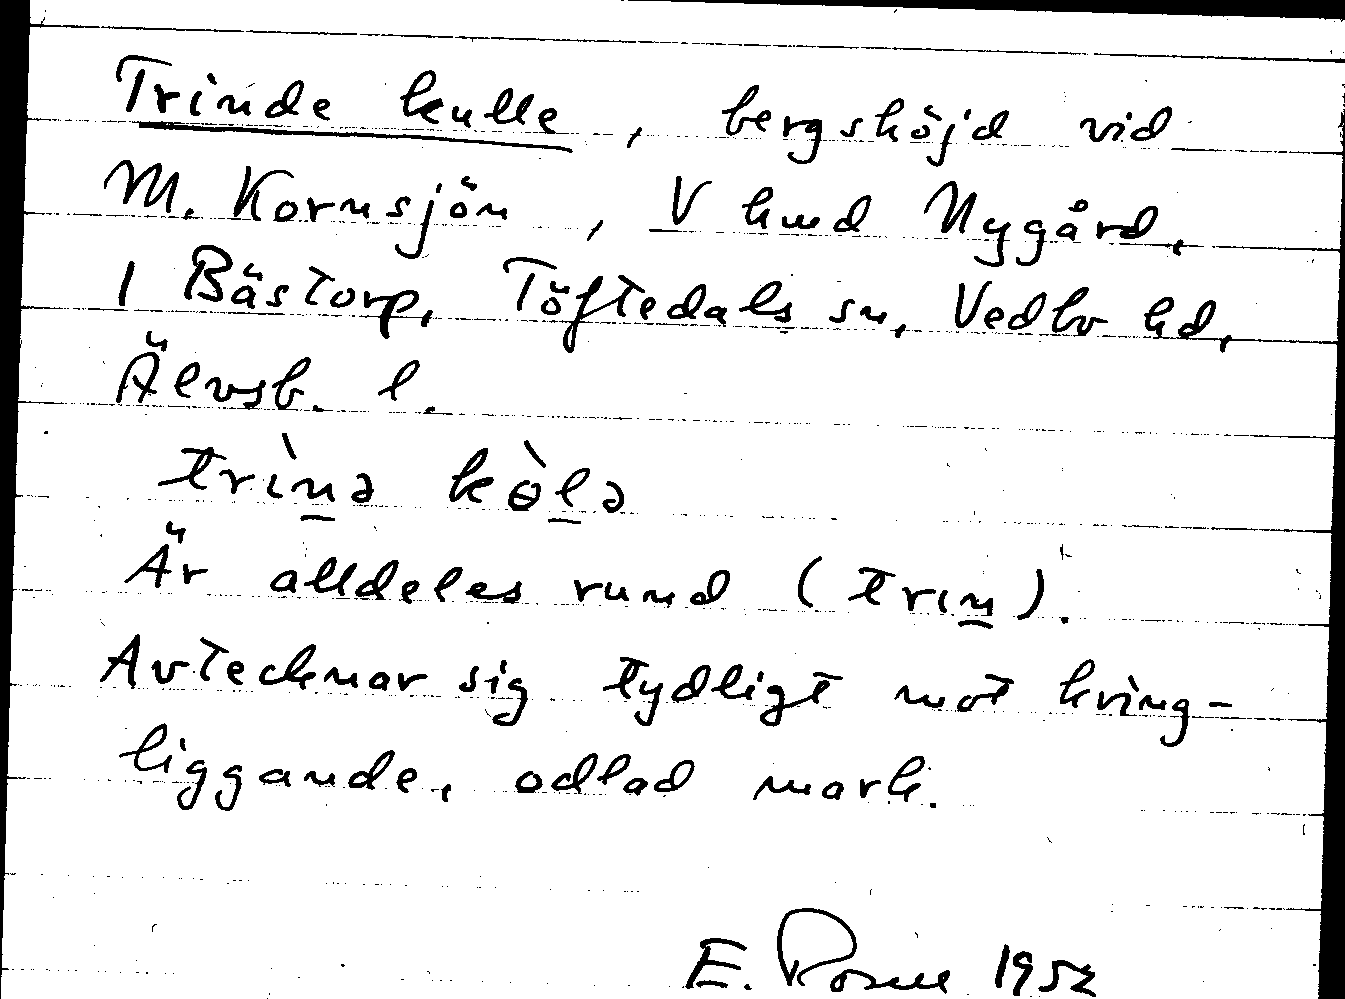 Trinde kulle, bergshöjd vid
M. Kornsjön, V hmd Nygård,
1 Bästorp, Töftedals sn, Vedbo hd,
Älvsb. l.
trìnə kòlə
Är alldeles rund (trın).
Avtecknar sig tydligt mot kring-
liggande, odlad mark.
E. Rosell 1952